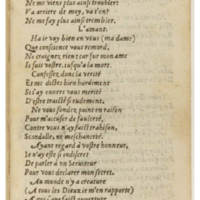 Ne me viens plus ainsi troubler:
Va arriere de moy, va t'en?
Ne me fay plus ainsi trembler.
L'amant.
Ha ie voy bien en vous (ma dame)
Que conscience vous remord,
Ne craignez, rien: car sur mon ame
Ie suis vostre, iusqu'à la mort.
Confessez, donc la verité
Et me dictes bien hardiment
Si i'ay envers vous merité
D'estre traicté si rudement,
Ne vous sondez, point en raison
Pour m'accuser de faulceté,
Contre vous n'ay faict trahison,
Scandalle, ny meschanceté.
Ayant regard à vostre honneur,
Ie n'ay esté si indiscret
De parler à un serviteur
Pour vous declarer mon secret.
Au monde n'y a creature
(A tous les Dieux ie m'en rapporte)